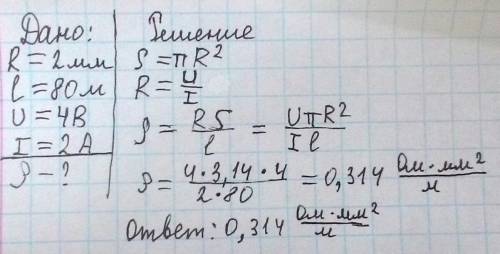 Дано:
R = 2 мм
l = 80 м
U = 4 В
I = 2 А
ρ - ?
Решение
S = πR²
R = U/I
ρ = RS/l = UπR²/Il
ρ = 4·3,14·4/2·80 = 0,314 Ом·мм²/м
Ответ: 0,314 Ом·мм²/м